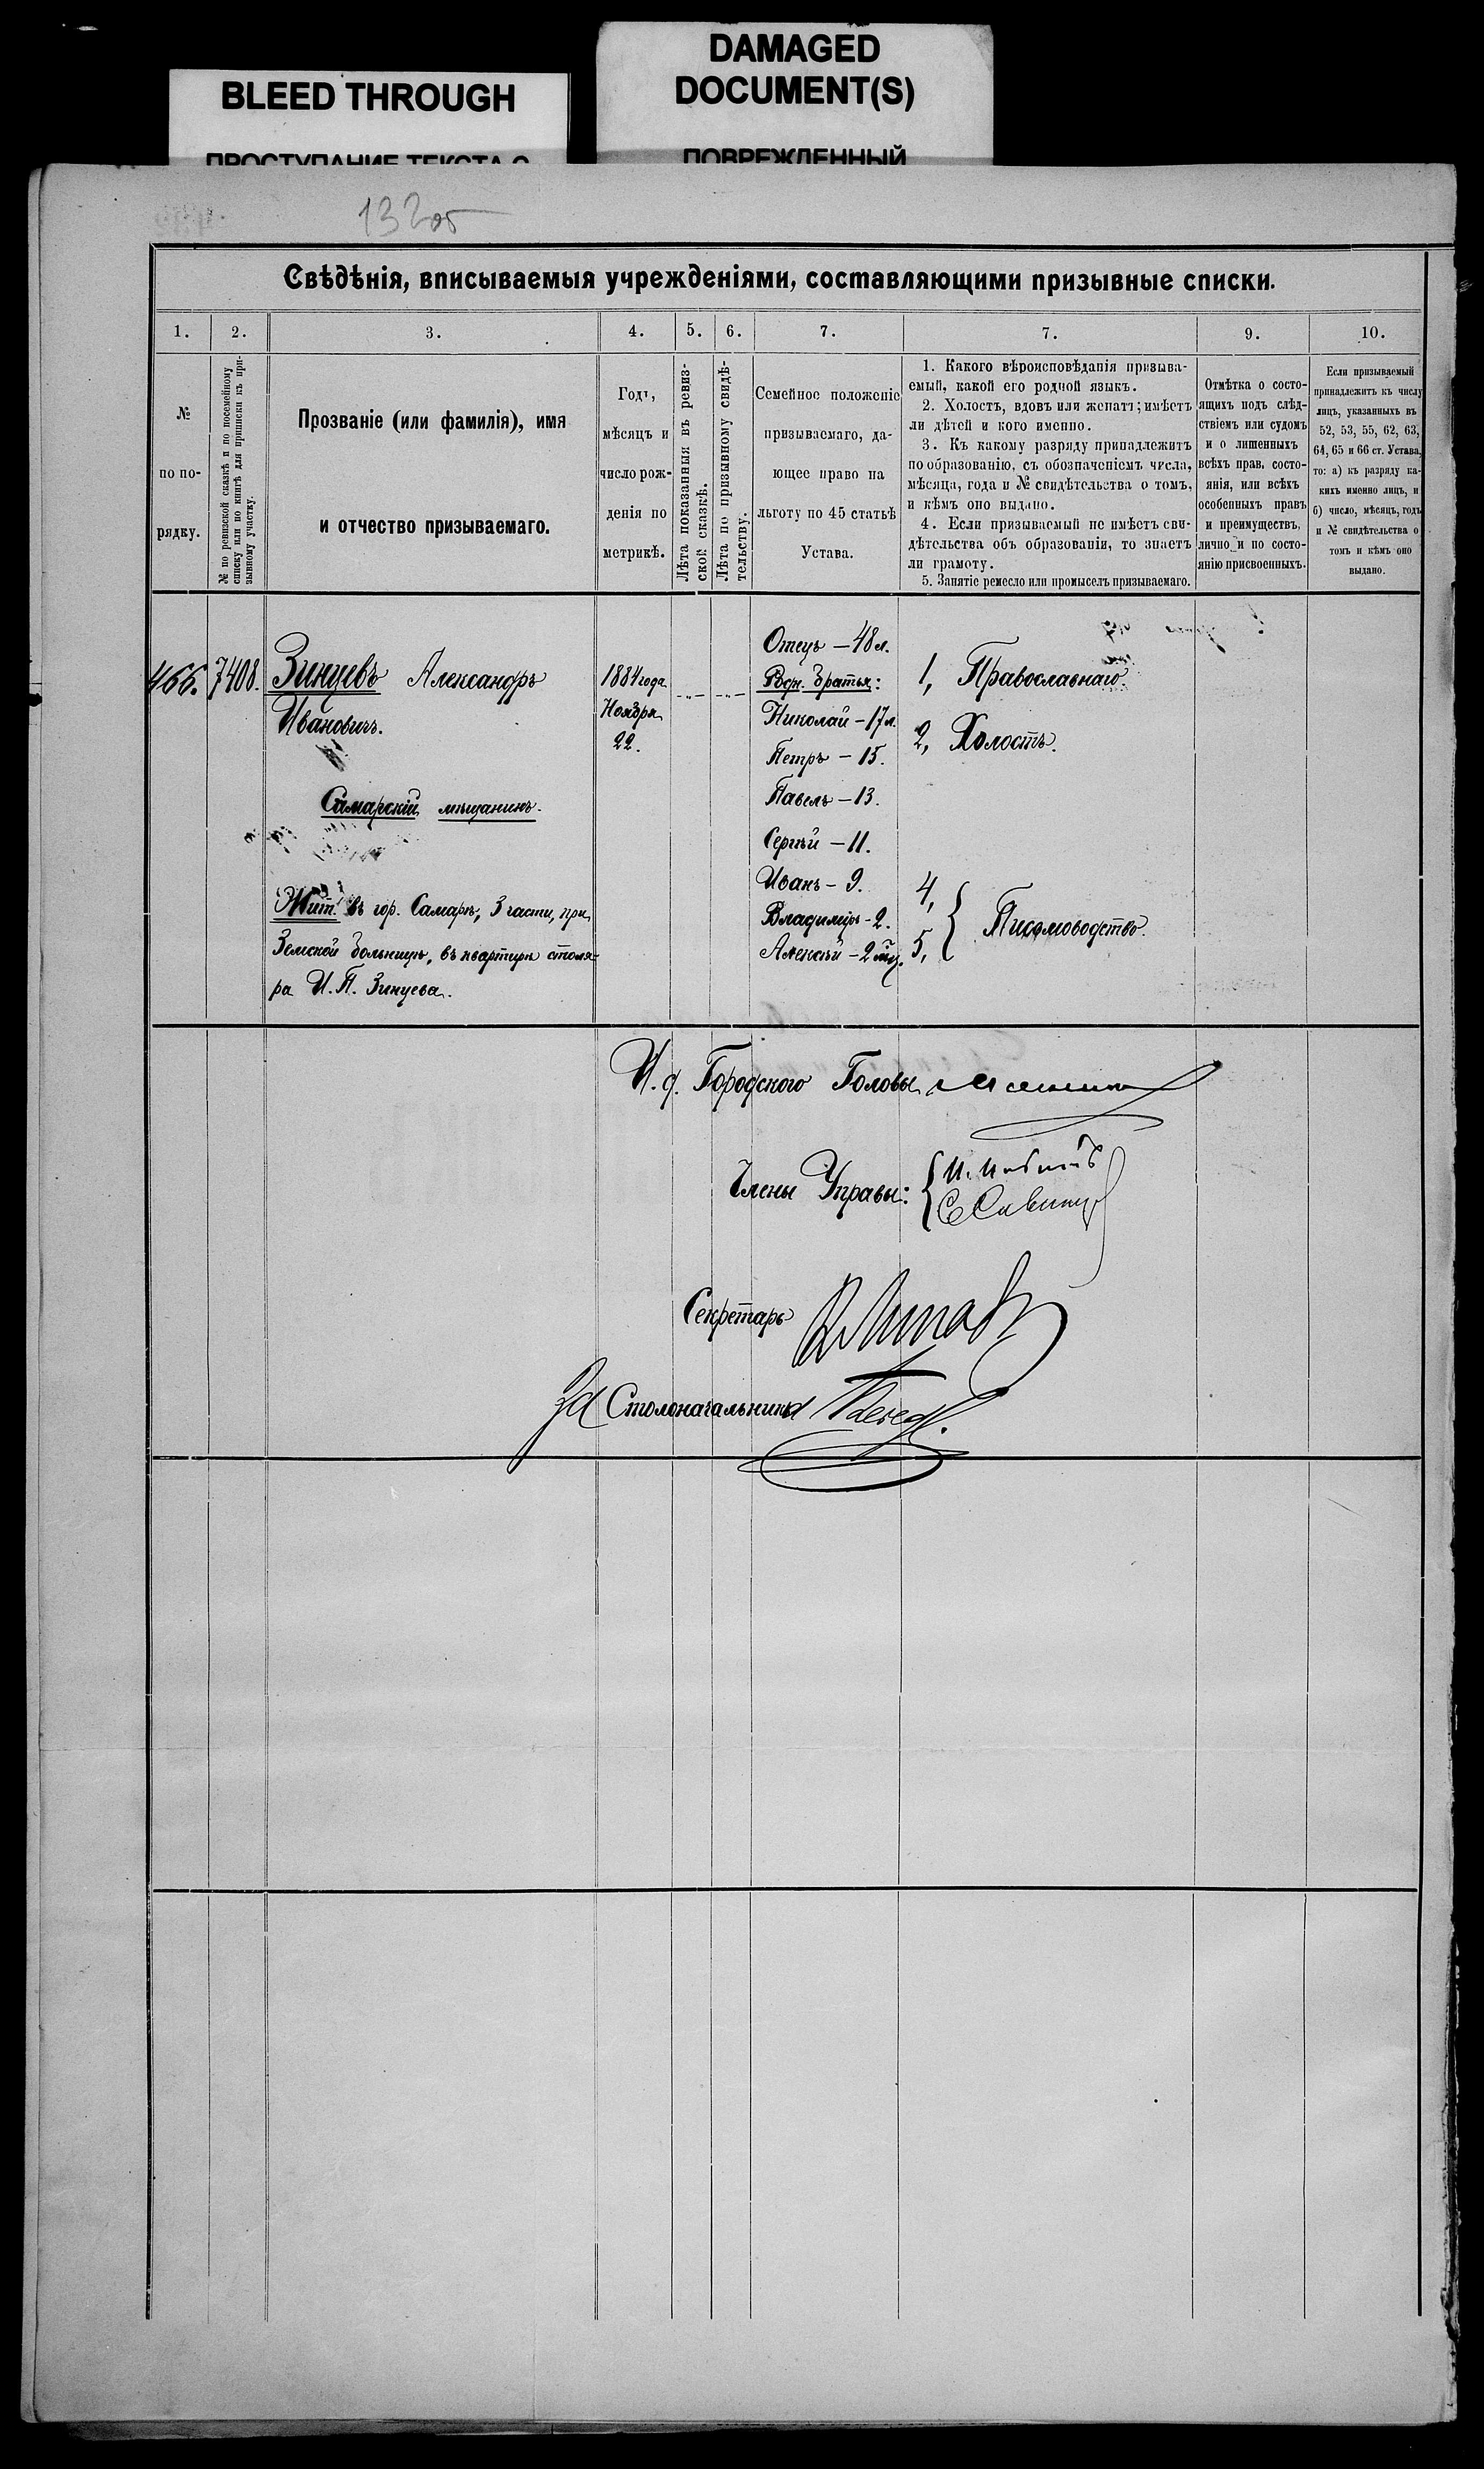 BLEED THROUGH
ПРОСТУПАНИЕ ТЕКСТА С
DAMAGED
DOCUMENT(S)
ПОВРЕЖДЕННЫЙ
132об
Свѣдѣнія, вписываемыя учрежденіями, составляющими призывные списки.
1.
2.
3.
4.
5.
6.
7.
7.
9.
10.
№
по по-
рядку.
№ по ревизской сказкѣ и по посемейному
списку или по книгѣ для приписки къ при-
зывному участку.
Прозваніе (или фамилія), имя
и отчество призываемаго.
Годъ,
мѣсяцъ и
число рож-
денія по
метрикѣ.
Лѣта показанныя въ ревиз-
ской сказкѣ.
Лѣта по призывному свидѣ-
тельству.
Семейное положеніе
призываемаго, да-
ющее право на
льготу по 45 статьѣ
Устава.
1. Какого вѣроисповѣданія призыва-
емый, какой его родной языкъ.
2. Холостъ, вдовъ или женатъ; имѣетъ
ли дѣтей и кого именно.
3. Къ какому разряду принадлежитъ
по образованію, съ обозначеніемъ числа,
мѣсяца, года и № свидѣтельства о томъ,
и кѣмъ оно выдано.
4. Если призываемый не имѣетъ сви-
дѣтельства объ образованіи, то знаетъ
ли грамоту.
5. Занятіе ремесло или промыселъ призываемаго.
Отмѣтка о состо-
ящихъ подъ слѣд-
ствіемъ или судомъ
и о лишенныхъ
всѣхъ прав, состо-
янія, или всѣхъ
особенныхъ правъ
и преимуществъ,
лично и по состо-
янію присвоенныхъ.
Если призываемый
принадлежитъ къ числу
лицъ, указанныхъ въ
52, 53, 55, 62, 63,
64, 65 и 66 ст. Устава,
то: а) къ разряду ка-
кихъ именно лицъ, и
б) число, мѣсяцъ, годъ
и № свидѣтельства о
томъ и кѣмъ оно
выдано.
466.
7408.
Зинцевъ Александръ
Ивановичъ.
Самарскій мѣщанинъ.
Жит. въ гор. Самарѣ, 3 части, при
Земской больницѣ, въ квартирѣ столя-
ра И. П. Зинцева.
1884 года
Ноября
22.
Отецъ — 48 л.
Родн. братья:
Николай — 17 л.
Петръ — 15.
Павелъ — 13.
Сергѣй — 11.
Иванъ — 9.
Владиміръ — 2.
Алексѣй — 2 мц.
1, Православнаго.
2, Холостъ.
4,
5, } Писмоводство.
И. д. Городского Головы
Члены Управы:
Секретарь
За Столоначальника